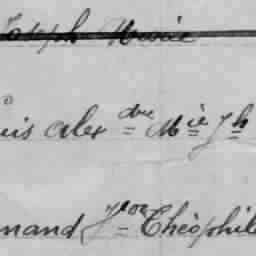 Joseph Marie
uis Alex dre M ie Jh
nand Fçois Théophil